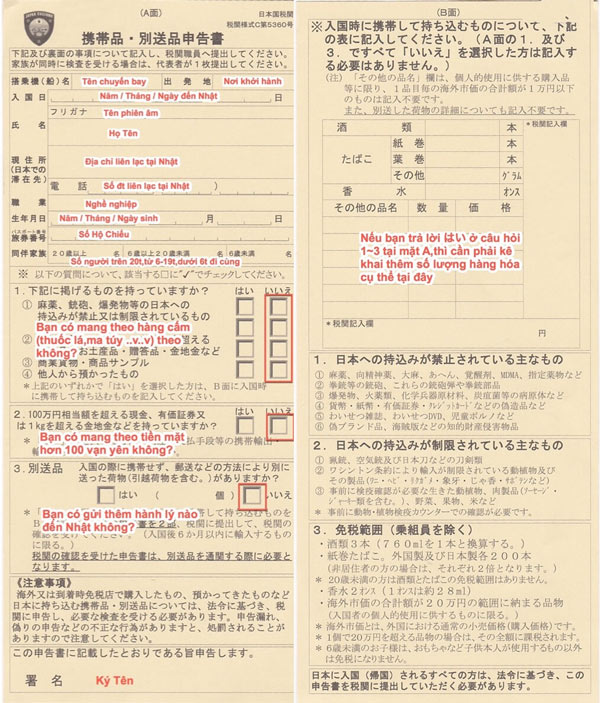 (A面)
日本国税関
税関様式C第5360号
携帯品・別送品申告書
下記及び裏面の事項について記入し、税関職員へ提出してください。
家族が同時に検査を受ける場合は、代表者が1枚提出してください。
搭乗機(船)名 Tên chuyến bay 出発地 Nơi khởi hành
入国日 Năm / Tháng / Ngày đến Nhật 日
フリガナ Tên phiên âm
氏名 Họ Tên
現住所
(日本での
滞在先)
Địa chỉ liên lạc tại Nhật
電話 Số đt liên lạc tại Nhật )
職業 Nghề nghiệp
生年月日 Năm / Tháng / Ngày sinh 月 日
パスポート番号
旅券番号 Số Hộ Chiếu
同伴家族 20歳以上 名 6歳以上20歳未満 名 6歳未満 名
Số người trên 20t,từ 6-19t,dưới 6t đi cùng
※ 以下の質問について、該当する□に"✓"でチェックしてください。
1.下記に掲げるものを持っていますか? はい いいえ
① 麻薬、銃砲、爆発物等の日本への
持込みが禁止又は制限されているもの
Bạn có mang theo hàng cấm
② (thuốc lá,ma túy ..v..v) theo 超える
không? ・お土産品・贈答品・金地金など
③ 商業貨物・商品サンプル
④ 他人から預かったもの
*上記のいずれかで「はい」を選択した方は、B面に入国時
に携帯して持ち込むものを記入してください。
2.100万円相当額を超える現金、有価証券又 はい いいえ
は1kgを超える金地金などを持っていますか?
Bạn có mang theo tiền mặt
払手段等の携帯輸出・
hơn 100 vạn yên không?
3.別送品 入国の際に携帯せず、郵送などの方法により別に
送った荷物(引越荷物を含む。)がありますか?
はい ( 個) いいえ
Bạn có gửi thêm hành lý nào
đến Nhật không?
持ち込むものを
税関に提出して、税関の
確認を受けてください。(入国後6か月以内に輸入するもの
に限る。)
税関の確認を受けた申告書は、別送品を通関する際に必要と
なります。
《注意事項》
海外又は到着時免税店で購入したもの、預かってきたものなど
日本に持ち込む携帯品・別送品については、法令に基づき、税
関に申告し、必要な検査を受ける必要があります。申告漏れ、
偽りの申告などの不正な行為がありますと、処罰されることが
ありますので注意してください。
この申告書に記載したとおりである旨申告します。
署名 Ký Tên
(B面)
※入国時に携帯して持ち込むものについて、下記
の表に記入してください。(A面の1.及び
3.ですべて「いいえ」を選択した方は記入す
る必要はありません。)
(注)「その他の品名」欄は、個人的使用に供する購入品
等に限り、1品目毎の海外市価の合計額が1万円以下
のものは記入不要です。
また、別送した荷物の詳細についても記入不要です。
酒類 本 *税関記入欄
たばこ 紙巻 本
葉巻 本
その他 グラム
香水 オンス
その他の品名 数量 価格
Nếu bạn trả lời はい ở câu hỏi
1~3 tại mặt A,thì cần phải kê
khai thêm số lượng hàng hóa
cụ thể tại đây
*税関記入欄
円
1.日本への持込みが禁止されている主なもの
① 麻薬、向精神薬、大麻、あへん、覚醒剤、MDMA、指定薬物など
② 拳銃等の銃砲、これらの銃砲弾や拳銃部品
③ 爆発物、火薬類、化学兵器原材料、炭疽菌等の病原体など
④ 貨幣・紙幣・有価証券・クレジットカードなどの偽造品など
⑤ わいせつ雑誌、わいせつDVD、児童ポルノなど
⑥ 偽ブランド品、海賊版などの知的財産侵害物品
2.日本への持込みが制限されている主なもの
① 猟銃、空気銃及び日本刀などの刀剣類
② ワシントン条約により輸入が制限されている動植物及び
その製品(ワニ・ヘビ・リクガメ・象牙・じゃ香・サボテンなど)
③ 事前に検疫確認が必要な生きた動植物、肉製品(ソーセージ・
ジャーキー類を含む。)、野菜、果物、米など
* 事前に動物・植物検疫カウンターでの確認が必要です。
3.免税範囲(乗組員を除く)
・酒類3本(760mlを1本と換算する。)
・紙巻たばこ。外国製及び日本製各200本
(非居住者の方の場合は、それぞれ2倍となります。)
* 20歳未満の方は酒類とたばこの免税範囲はありません。
・香水2オンス(1オンスは約28ml)
・海外市価の合計額が20万円の範囲に納まる品物
(入国者の個人的使用に供するものに限る。)
* 海外市価とは、外国における通常の小売価格(購入価格)です。
* 1個で20万円を超える品物の場合は、その全額に課税されます。
* 6歳未満のお子様は、おもちゃなど子供本人が使用するもの以外
は免税になりません。
日本に入国(帰国)されるすべての方は、法令に基づき、この
申告書を税関に提出していただく必要があります。